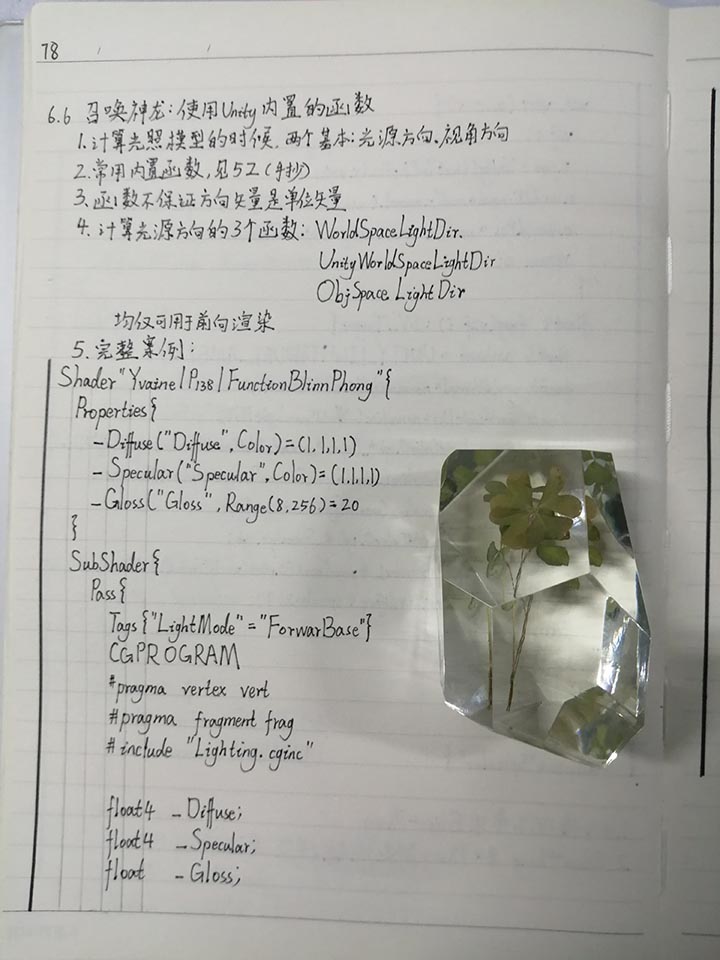 78
6.6 召唤神龙:使用Unity内置的函数
1.计算光照模型的时候,两个基本:光源方向、视角方向
2.常用内置函数,见52(手抄)
3.函数不保证方向矢量是单位矢量
4.计算光源方向的3个函数: WorldSpaceLightDir.
UnityWorldSpaceLightDir
ObjSpaceLightDir
均仅可用于前向渲染
5.完整案例:
Shader "Yvaine/P138/FunctionBlinnPhong"{
Properties{
_Diffuse("Diffuse",Color)=(1,1,1,1)
_Specular("Specular",Color)=(1,1,1,1)
_Gloss("Gloss",Range(8,256)=20
}
SubShader{
Pass{
Tags{"LightMode"="ForwarBase"}
CGPROGRAM
#pragma vertex vert
#pragma fragment frag
#include "Lighting.cginc"
float4 _Diffuse;
float4 _Specular;
float _Gloss;